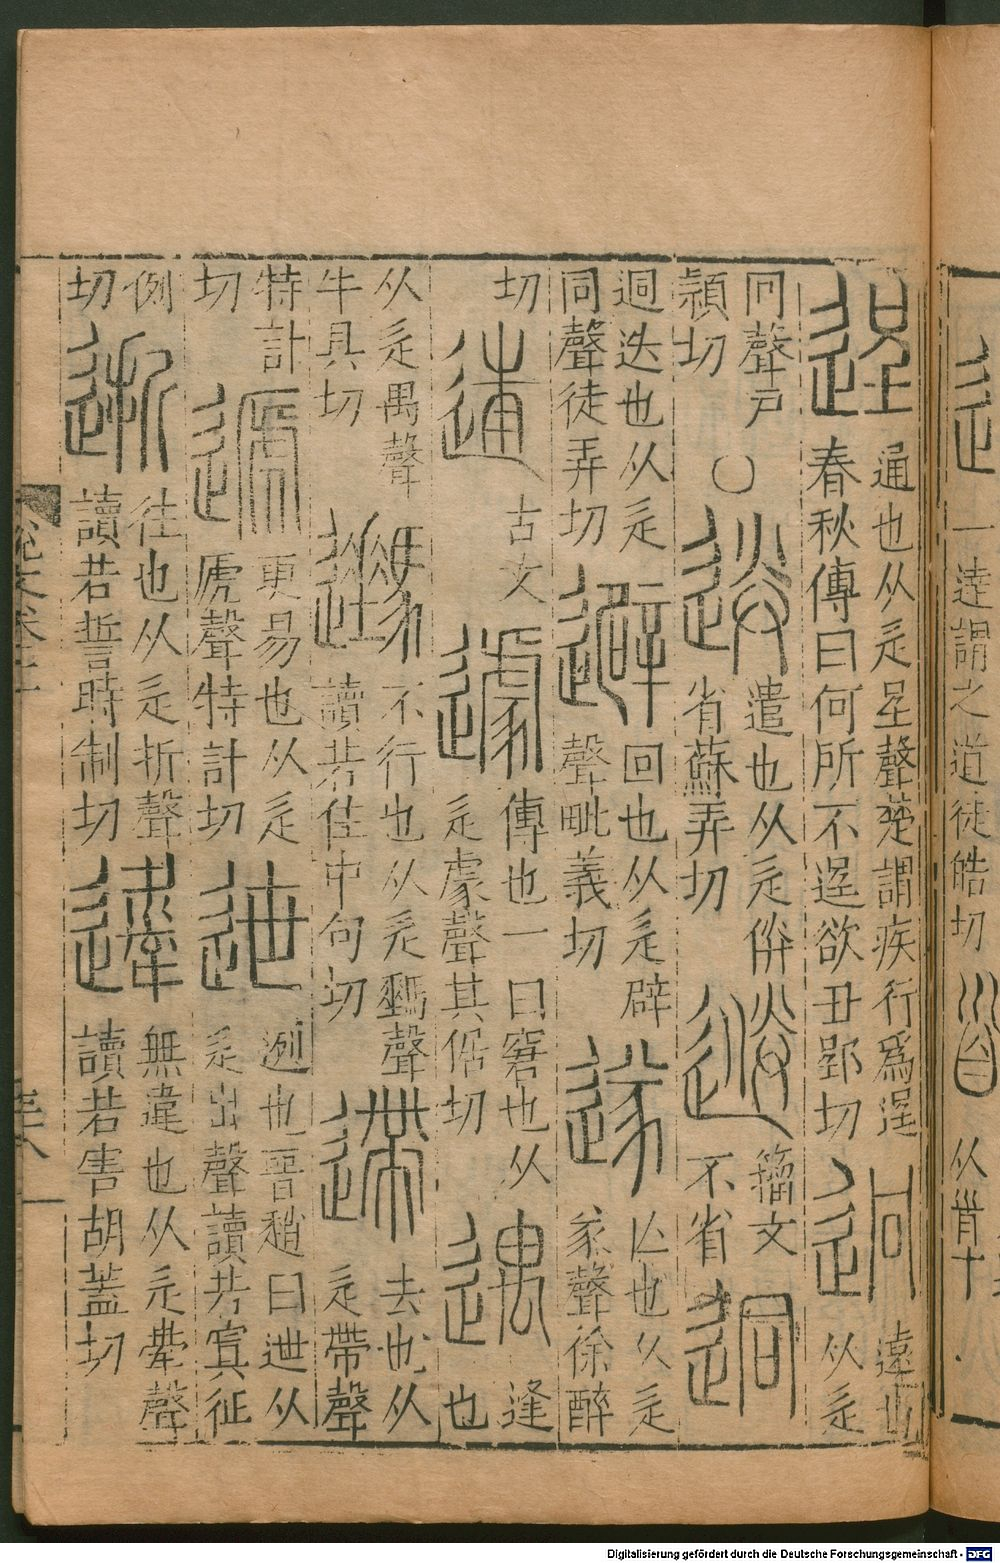 一達謂之道徒皓切
从𩠐寸
逞 通也从辵呈聲楚謂疾行爲逞春秋傳曰何所不逞欲丑郢切 迥 遠也从辵
冋聲戸熲切 ○ 送 遣也从辵倴省蘇弄切 𨕩 籀文不省 迵
迵迭也从辵同聲徒弄切 避 回也从辵辟聲毗義切 遂 亡也从辵㒸聲徐醉
切 古文 遽 傳也一曰窘也从辵豦聲其倨切 遇 逢也
从辵禺聲牛具切 不行也从辵𩣺聲讀若住中句切 遰 去也从辵帶聲
特計切 遞 更易也从辵虒聲特計切 迣 迾也晉趙曰迣从辵世聲讀若寘征
例切 逝 往也从辵折聲讀若誓時制切 無違也从辵舝聲讀若害胡蓋切
說文卷二
Digitalisierung gefördert durch die Deutsche Forschungsgemeinschaft - DFG